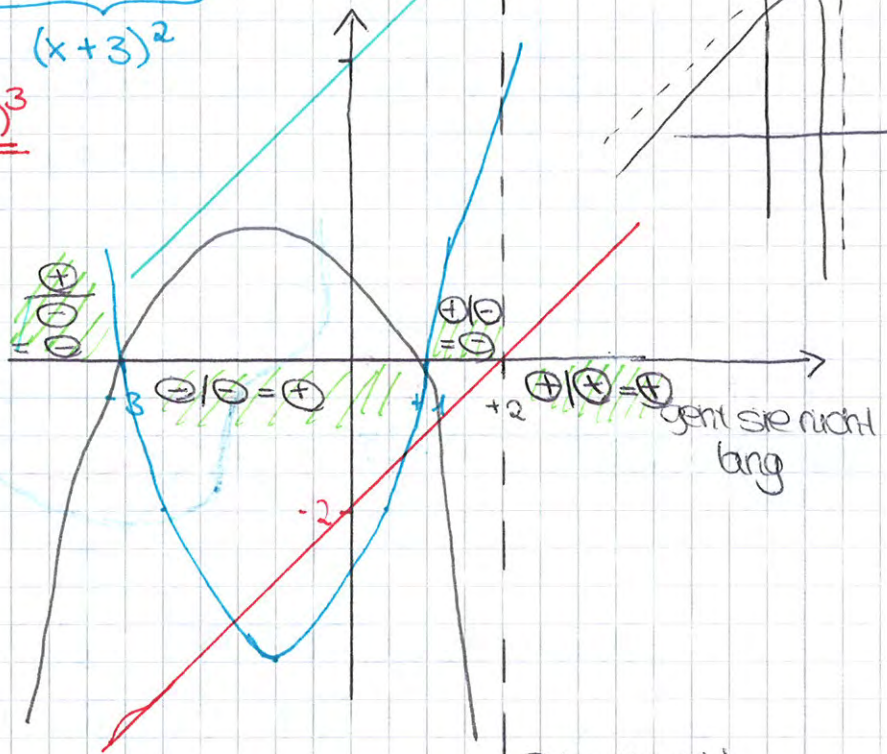 (x+3)²
)³
⊕
⊖
= ⊖
⊕|⊖
= ⊖
-3
⊖|⊖ = ⊕
+1
+2
⊕|⊕ = ⊕
geht sie nicht
lang
-2